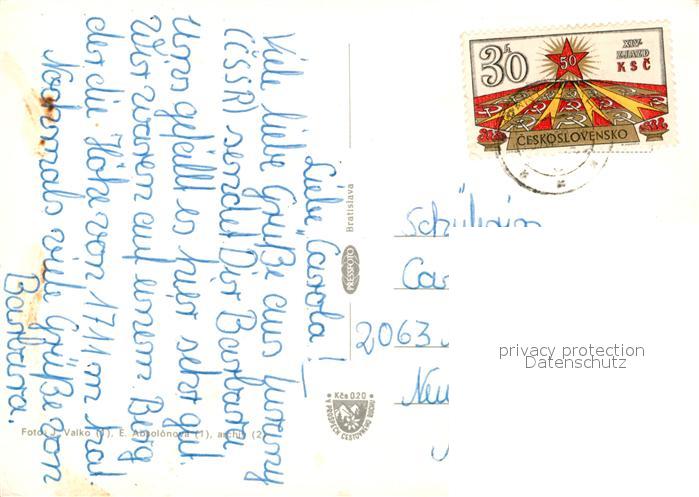 Liebe Carola!
Viele liebe Grüße aus
(ČSSR) sendet Dir Barbara
Uns gefällt es hier sehr gut.
Wir waren auf einem Berg
der die Höhe von 1711 m hat
Nochmals viele Grüße von
Barbara.
30 h
50
XIV.
ZJAZD
KSČ
ČESKOSLOVENSKO
Schülerin
Car
2063
Neu
privacy protection
Datenschutz
Bratislava
PRESSFOTO
Kčs 0.20
V PROSPĚCH CESTOVNÍHO RUCHU
Foto: J. Valko (1), E. Absolónova (1), archív (2)